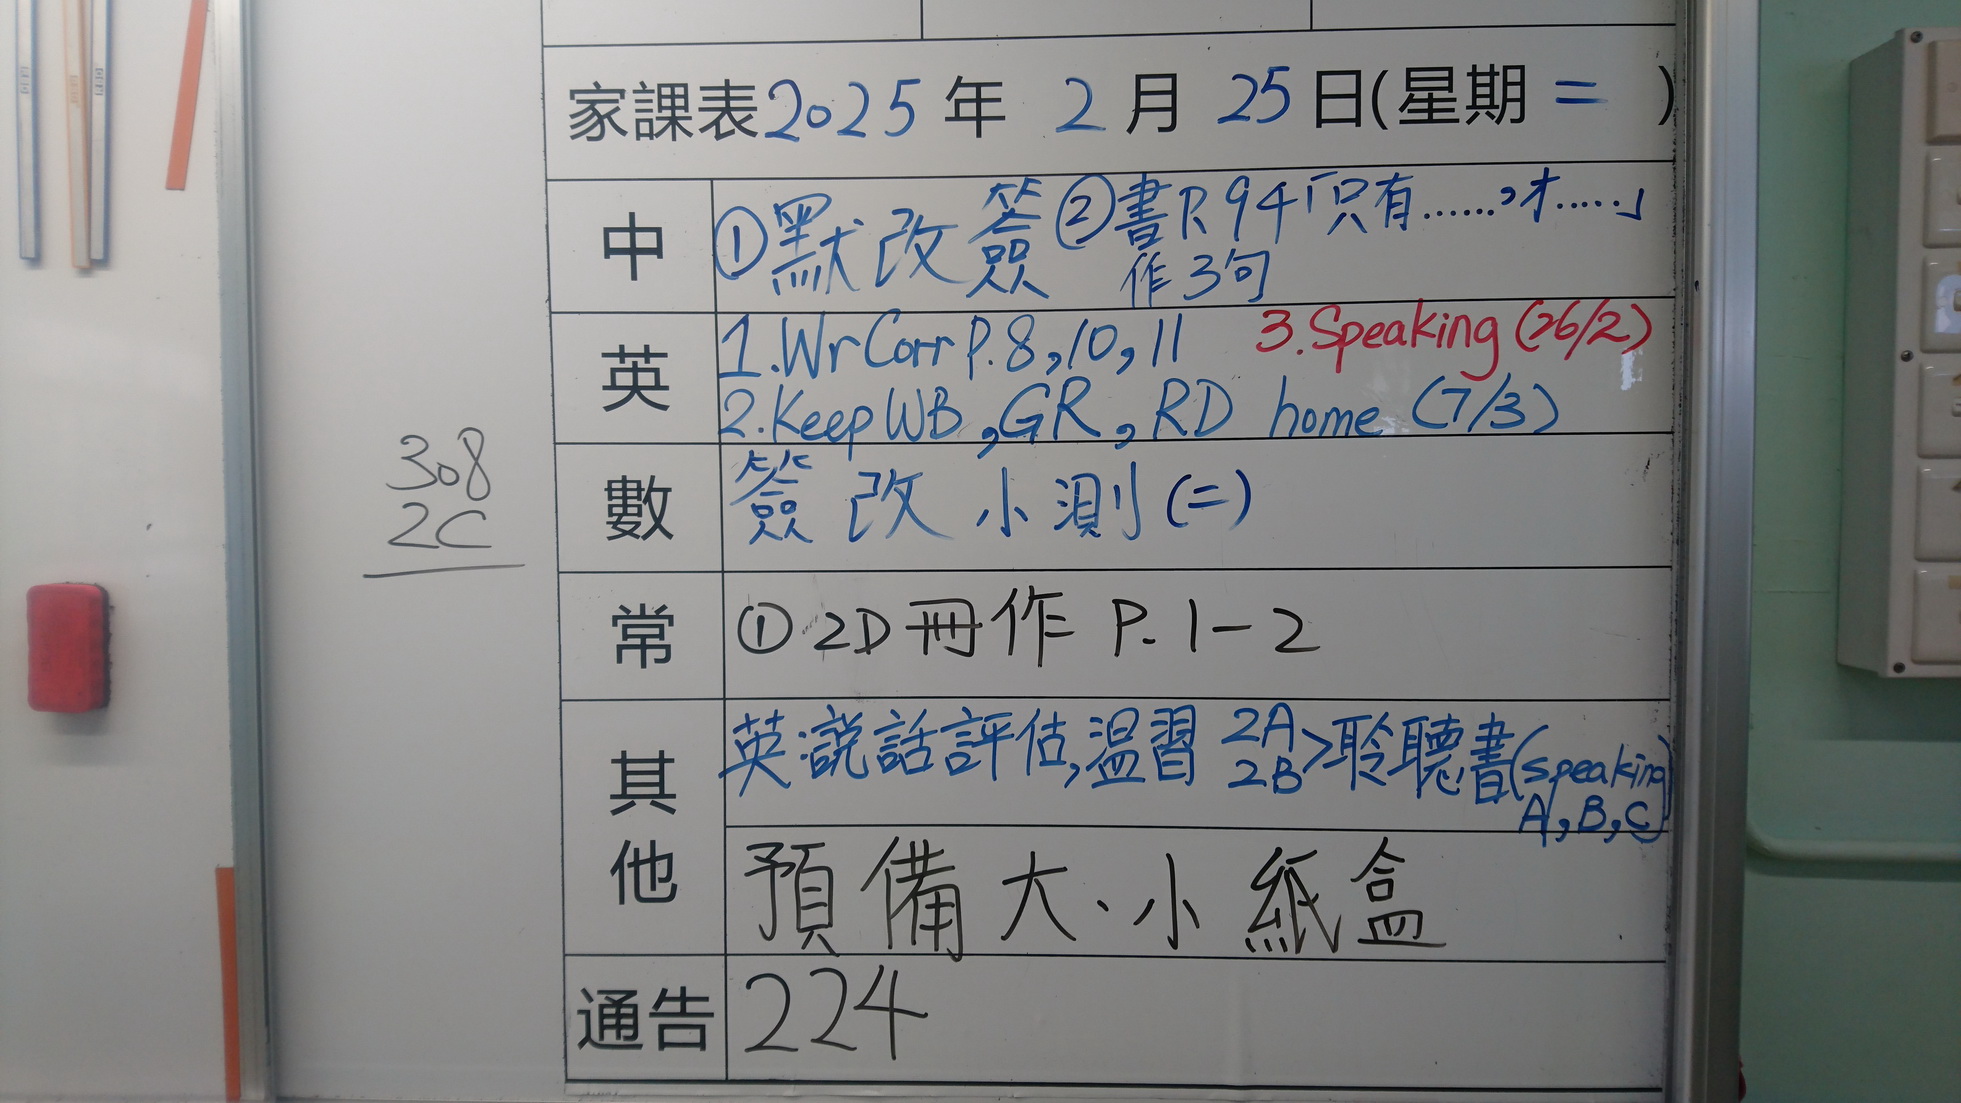 家課表2025年 2月 25日(星期二 )
中 ①默改簽 ②書P.94「只有......,才.....」
作3句
英 1.Wr Corr P.8,10,11 3.Speaking (26/2)
2.Keep WB, GR, RD home (7/3)
308
2C
數 簽改小測(二)
常 ① 2D冊作 P.1-2
其他 英:說話評估,溫習 2A
2B>聆聽書(speaking
A, B, C)
預備大、小紙盒
通告 224